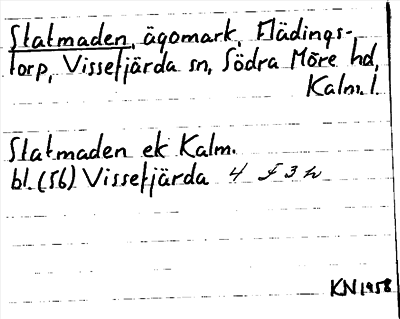 Slatmaden, ägomark, Flädings-
torp, Vissefjärda sn, Södra Möre hd,
Kalm. l.
Slatmaden ek Kalm.
bl. (56) Vissefjärda 4 F 3 h
KN 1958